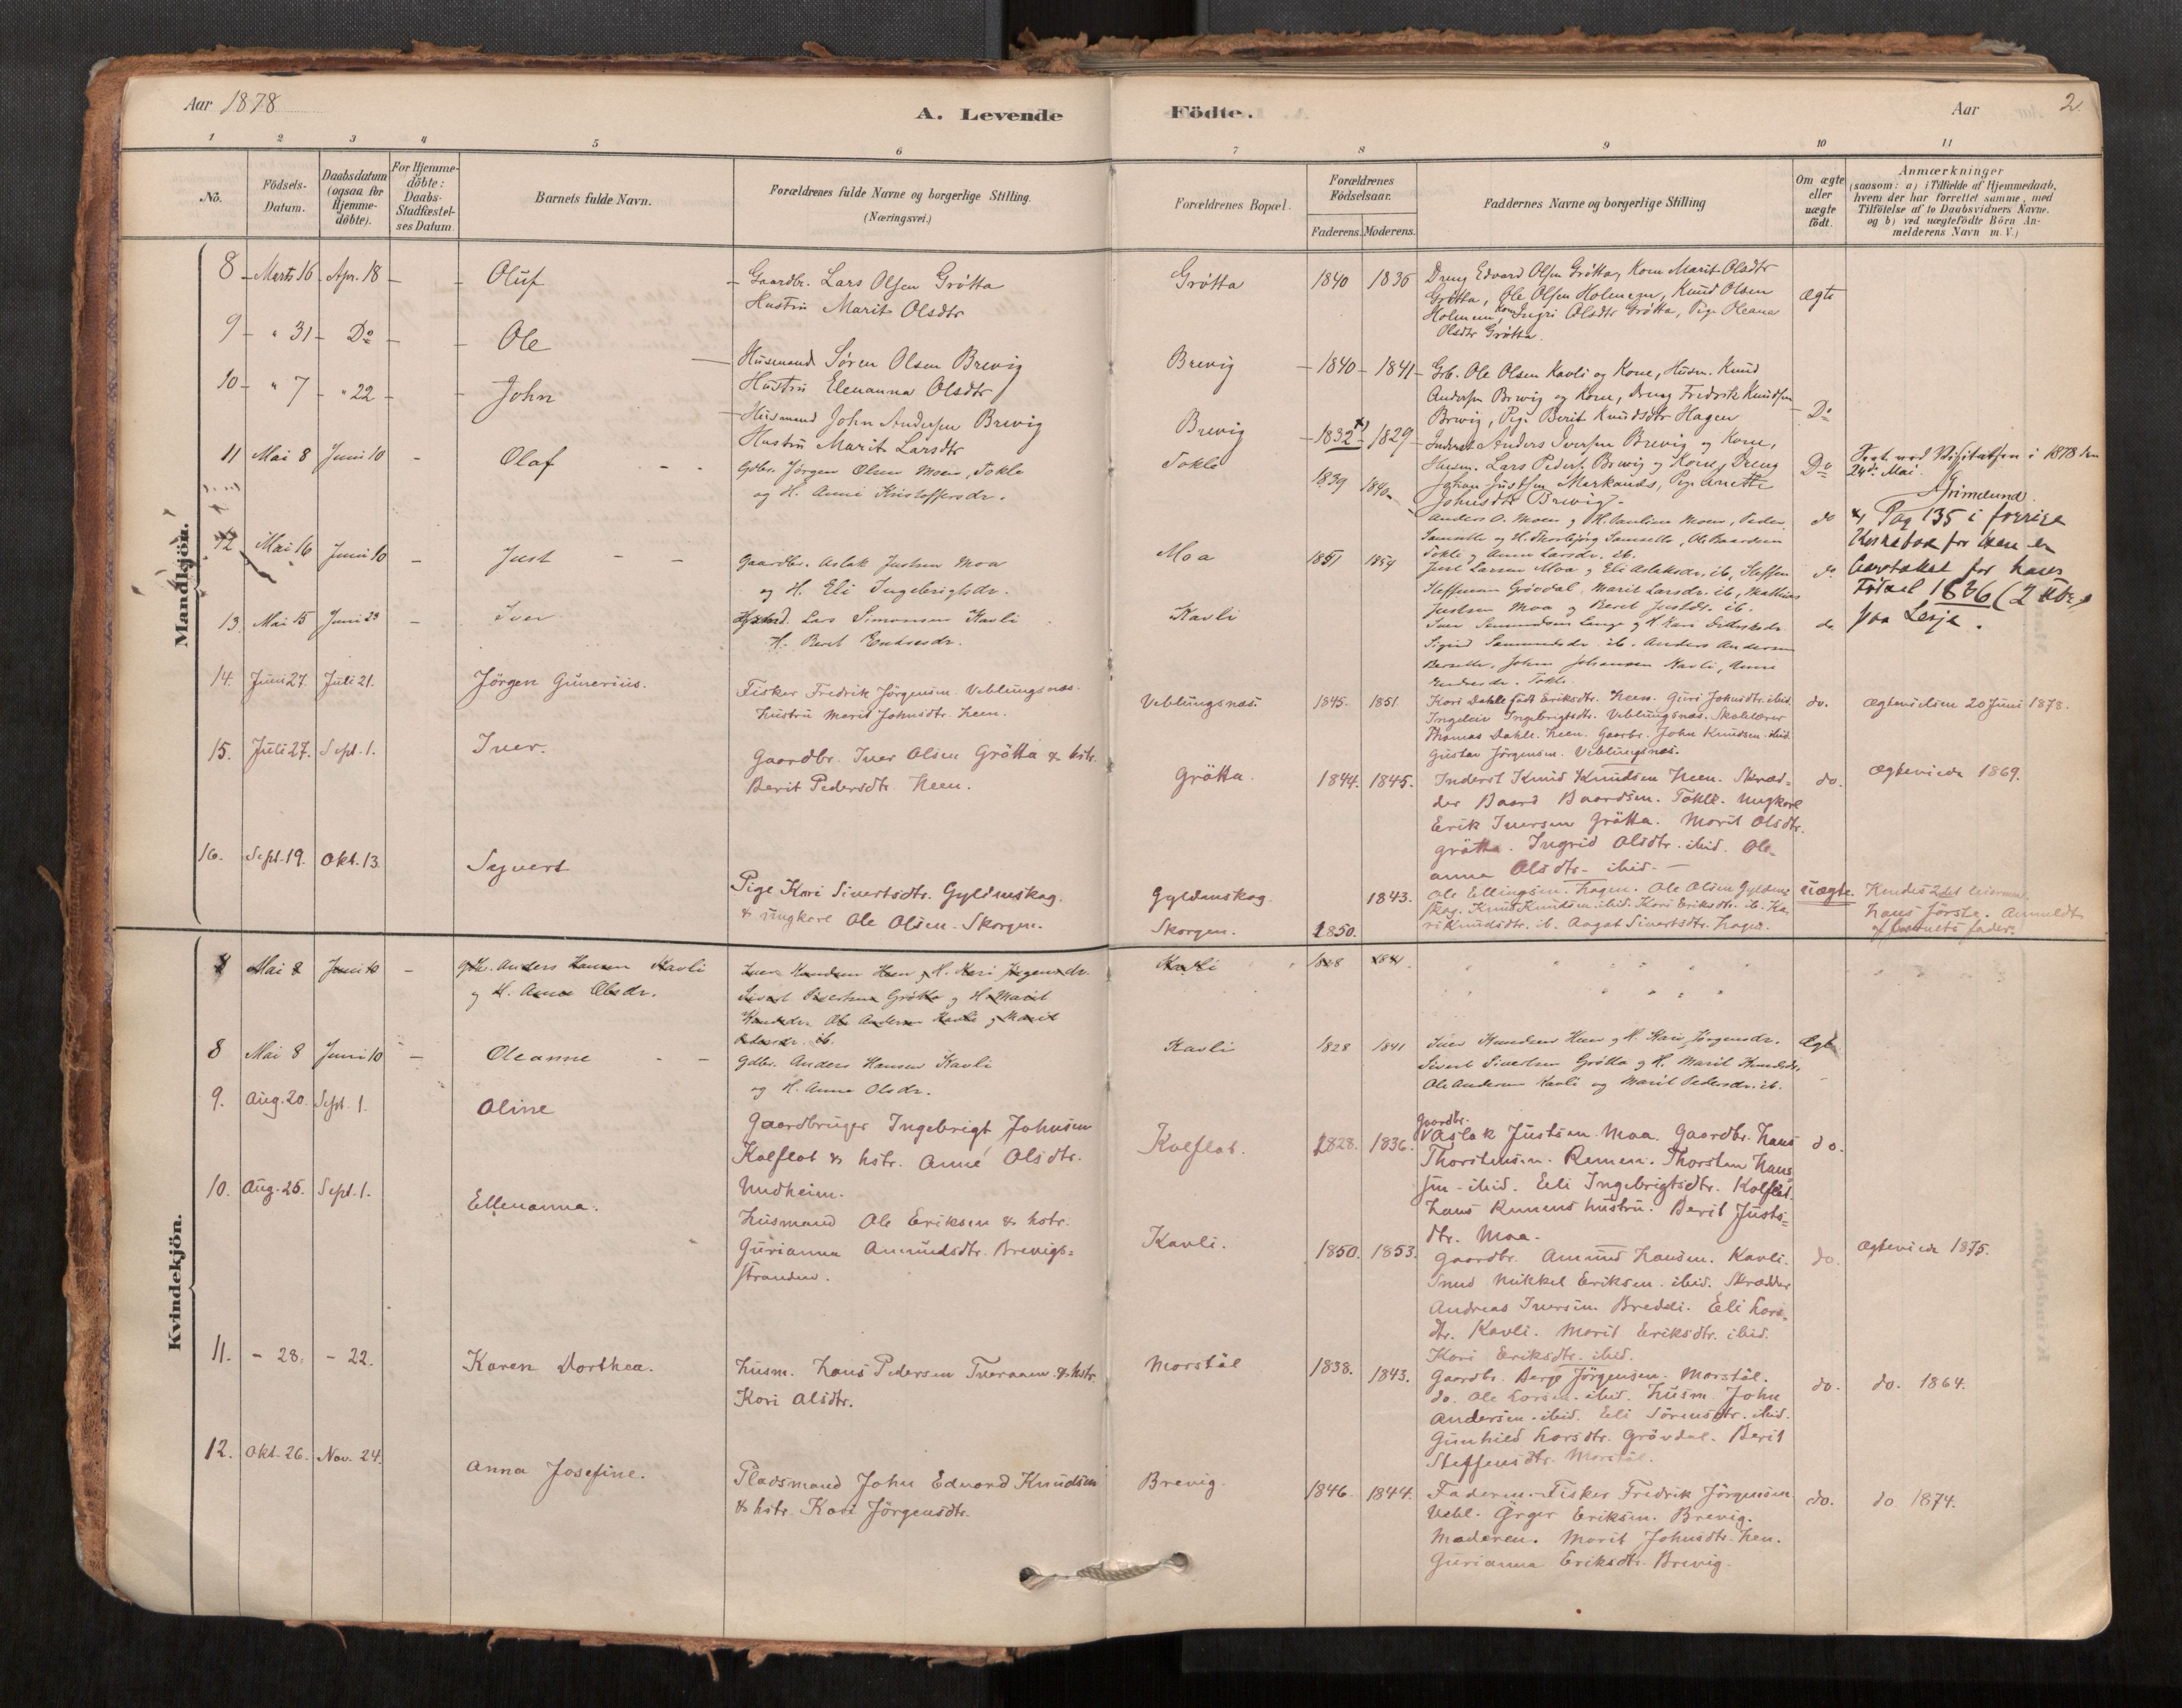 Aar 1878
A. Levende
Födte.
Aar
2
1 2 3 4 5 6 7 8 9 10 11
No.
Födsels-
Datum.
Daabsdatum
(ogsaa for
Hjemme-
döbte).
For Hjemme-
döbte:
Daabs-
Stadfæstel-
ses Datum.
Barnets fulde Navn.
Forældrenes fulde Navne og borgerlige Stilling.
(Næringsvei.)
Forældrenes Bopæl.
Forældrenes
Födselsaar.
Faderens. Moderens.
Faddernes Navne og borgerlige Stilling
Om ægte
eller
uægte
födt.
Anmærkninger
(saasom: a) i Tilfælde af Hjemmedaab,
hvem der har forrettet samme, med
Tilföielse af to Daabsvidners Navne.
og b) ved uægtefödte Börn An-
melderens Navn m. V.)
Mandkjön.
8 - Marts 16 - Apr. 18 - - Oluf - Gaardbr. Lars Olsen Grôtta
Hustru Marit Olsdtr
Grôtta 1840 1836
Dreng Edvard Olsen Grôtta, Kone Marit Olsdtr
Grôtta, Ole Olsen Holmem, Knud Olsen
Holmem, Kone Ingri Olsdtr Grôtta, Pige Oleana
Olsdtr Grôtta.
ægte
9 - " 31 - Do - - Ole
Husmand Sôren Olsen Brevig
Hustru Elenanna Olsdtr
Brevig - 1840 - 1841 -
Grb. Ole Olsen Kavli og Kone, Husm. Knud
Andersen Brevig og Kone, Dreng Fredrik Knudsen
Brevig, Pige Berit Knudsdtr Hagen
Do
10 - " 7 - " 22 - - John
Husmand John Andersen Brevig
Hustru Marit Larsdtr
Brevig - 1832 x) - 1829 -
Inderst Anders Iversen Brevig og Kone,
Husm. Lars Peders. Brevig og Kone, Dreng
Johan Justsen Markands, Pige Anette
Johnsdtr Brevig
Do
11 Mai 8 Juni 10 - Olaf - -
Gdbr. Jörgen Olsen Moen, Tokle
og H. Anne Kristoffersdr.
Tokle 1839 1840
Anders O. Moen og H. Paulina Moen, Peder
Samsette og H. Thorbjörg Samsette, Ole Baardsen
Tokle og Anne Larsdr. ib.
do
ved Visitatsen i 1878 den
24de Mai.
Grimelund.
x) Pag 135 i forrige
Kirkebok for
for hans
Födsel 1836 (2 Oktr.)
paa Lesje.
12 Mai 16 Juni 10 - Just - -
Gaardbr. Aslak Justsen Moa
og H. Eli Ingebrigtsdr.
Moa 1851 1854
Just Larsen Moa og Eli Aslaksdr. ib, Steffen
Steffensen Grövdal, Marit Larsdr. ib, Mathias
Justsen Moa og Berit Justsdr. ib.
do
13. Mai 15 Juni 23 - Iver
Lars Simonsen Kavli
H. Berit Endresdr.
Kavli
Iver Amundsen Lange og H. Kari Didriksdr.
Sigrid Samundsdr. ib. Anders Andersen
John Johansen Kavli, Anne
Endresdr. Tokle
do
14. Juni 27. Juli 21. Jörgen Gunerius.
Fisker Fredrik Jörgensen Veblungsnæs.
Hustru Marit Johnsdtr. Heen.
Veblungsnæs. 1845. 1851.
Kari Dahle født Eriksdtr. Heen. Guri Johnsdtr. ibid.
Ingeleiv Ingebrigtsdtr. Veblungsnæs. Skolelærer
Thomas Dahle. Heen. Gaarbr. John Knudsen ibid.
Gustav Jörgensen. Veblungsnæs.
do.
Ægteviedes 20 Juni 1878.
15. Juli 27. Sept. 1. Iver.
Gaardbr. Iver Olsen Grötta & hstr.
Berit Pedersdtr. Heen.
Grötta. 1844. 1845.
Inderst Knud Knudsen Heen. Skræd-
der Baard Baardsen. Tokle. Ungkarl
Erik Iversen Grötta. Marit Olsdtr.
Grötta. Ingrid Olsdtr. ibid. Ole-
anna Olsdtr. ibid. -
do.
Ægteviede 1869.
16. Sept. 19. Okt. 13. Syvert
Pige Kari Sivertsdtr. Gyldenskog.
& ungkarl Ole Olsen. Skorgen.
Gyldenskog.
Skorgen. 1850. 1843.
Ole Ellingsen. Hagen. Ole Olsen Gylden-
skog. Knud Knudsen. ibid. Kari Eriksdtr. ib. Ka-
ri Knudsdtr. ib. Aagot Sivertsdtr. Hagen.
uægte.
Hendes 2det leiermaal
hans förste. Anmeldt
af barnets fader.
Kvindekjön.
Mai 8 Juni 10 - Gdbr. Anders Hansen Kavli
og H. Anne Olsdr.
Iver Knudsen Heen og H. Kari Jörgensdr.
Sivert Sivertsen Grötta og H. Marit
Knudsdr. Ole Andersen Kavli og Marit
Pedersdr. ib.
Kavli 1828 1841
8 Mai 8 Juni 10 - Oleanne - -
Gdbr. Anders Hansen Kavli
og H. Anne Olsdr.
Kavli 1828 1841
Iver Knudsen Heen og H. Kari Jörgensdr.
Sivert Sivertsen Grötta og H. Marit Knudsdr,
Ole Andersen Kavli og Marit Pedersdr. ib.
Ægte
9. Aug. 20. Sept. 1. Oline
Gaardbruger Ingebrigt Johnsen
Kolflot & hstr. Anne Olsdtr.
Undheim.
Kolflot. 1828. 1836.
Gaardbr.
Aslak Justsen Moa. Gaardbr. Hans
Thorstensen. Remem. Thorsten Hans-
sen - ibid. Eli Ingebrigtsdtr. Kolflot.
Hans Remems hustru. Berit Justs-
dtr. Moa.
do.
10. Aug. 25. Sept. 1. Ellenanna.
Husmand Ole Eriksen & hstr.
Gurianna Amundsdtr. Brevigs-
stranden.
Kavli. 1850. 1853.
Gaardbr. Amund Hansen. Kavli.
Smed Mikkel Eriksen. ibid. Skrædder
Andreas Iversen Breddi. Eli Lars-
dtr. Kavli. Marit Eriksdtr. ibid.
Kari Eriksdtr. ibid.
do.
Ægteviede 1875.
11. - 28. - 22. Karen Dorthea.
Husm. Hans Pedersen Tveraaen & hstr.
Kari Olsdtr.
Morstöl 1838. 1843.
Gaardbr. Berge Jörgensen. Morstöl.
do. Ole Larsen. ibid. Husm. John
Andersen. ibid. Eli Sörensdtr. ibid.
Gunhild Larsdtr. Grövdal. Berit
Steffensdtr. Morstöl.
do.
do. 1864.
12. Okt. 26. Nov. 24. Anna Josefine.
Pladsmand John Edvard Knudsen
& hstr. Kari Jörgensdtr.
Brevig. 1846. 1844.
Faderen. Fisker Fredrik Jörgensen
Vebl. Örger Eriksen. Brevig.
Moderen. Marit Johnsdtr. Hen.
Gurianna Eriksdtr. Brevig.
do.
do 1874.